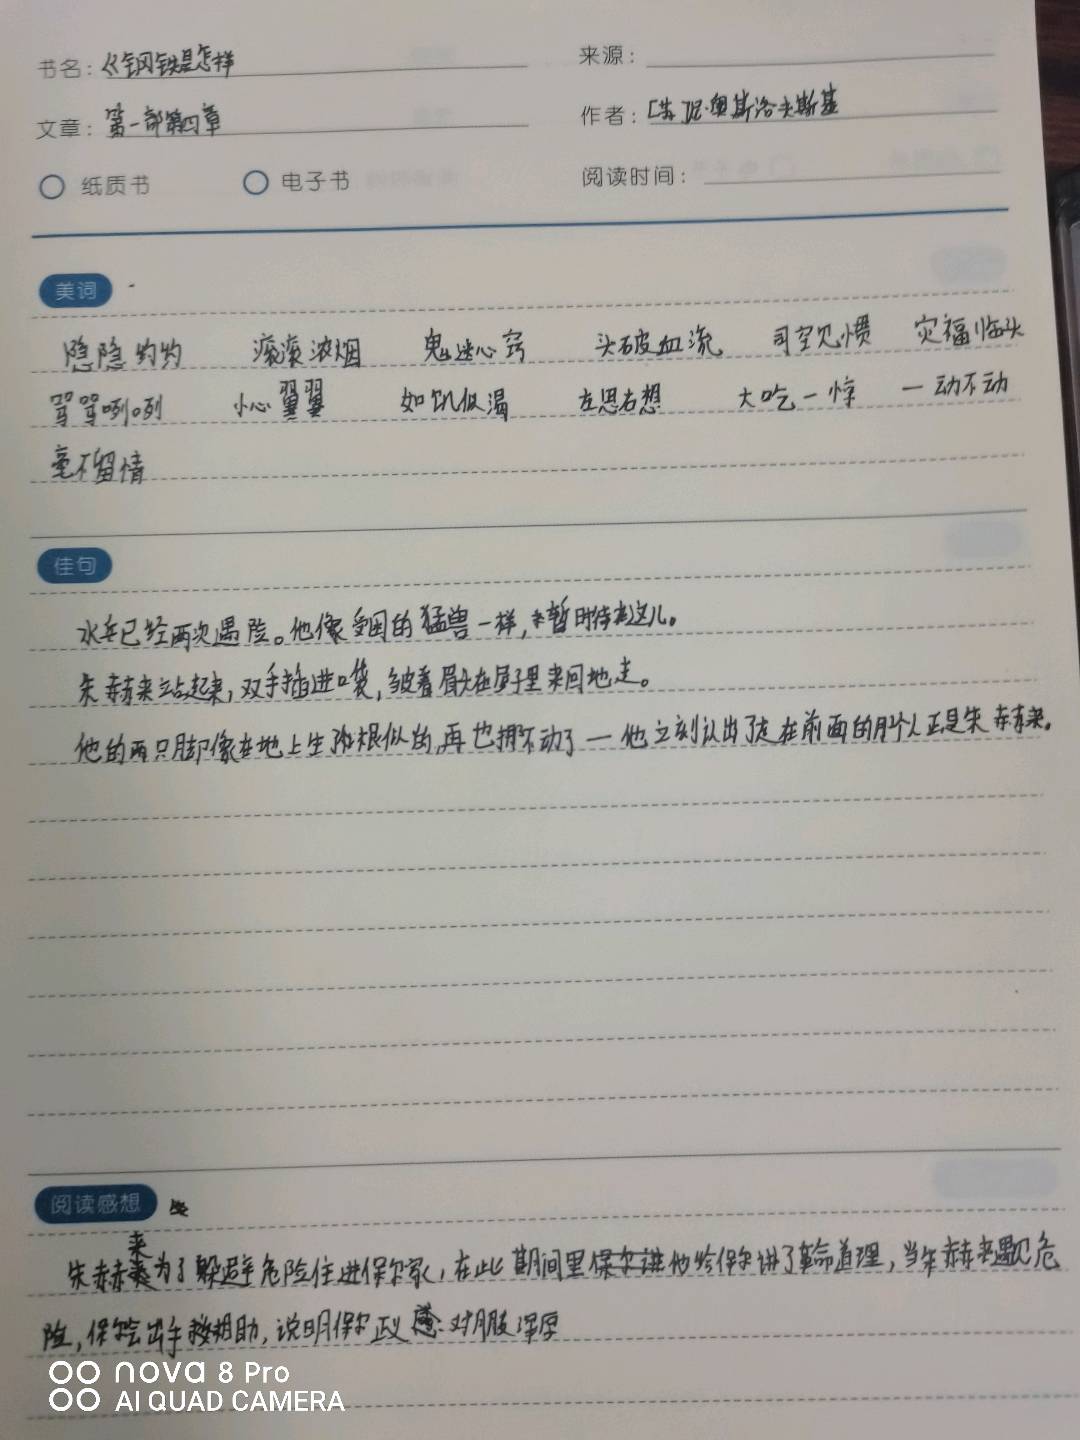 书名：《钢铁是怎样
来源：
文章：第一部第四章
作者：[苏]尼·奥斯洛夫斯基
纸质书 电子书
阅读时间：
美词
隐隐约约 滚滚浓烟 鬼迷心窍 头破血流 司空见惯 灾福临头
骂骂咧咧 小心翼翼 如饥似渴 左思右想 大吃一惊 一动不动
毫不留情
佳句
水兵已经两次遇险。他像受困的猛兽一样，暂时待在这儿。
朱赫来站起来，双手插进口袋，皱着眉头在屋子里来回地走。
他的两只脚像在地上生了根似的，再也挪不动了一他立刻认出了走在前面的那个人正是朱赫来。
阅读感想
朱赫来为了躲避危险住进保尔家，在此期间里他给保尔讲了革命道理，当朱赫来遇见危
险，保尔会出手相助，说明保尔正义 对朋友深厚
nova 8 Pro
AI QUAD CAMERA